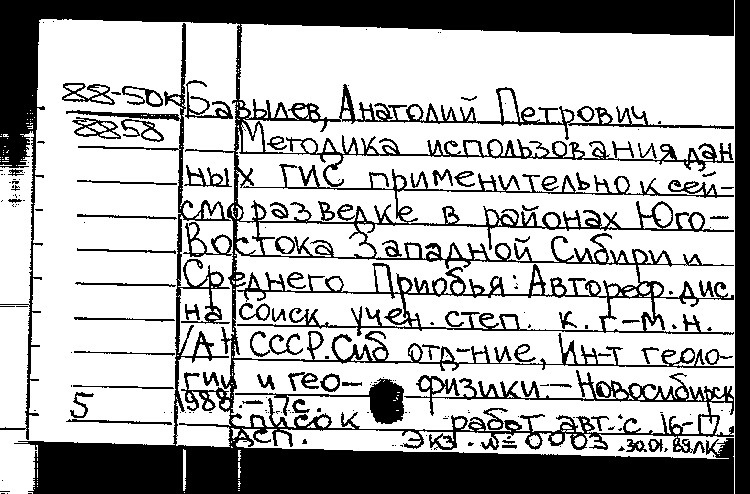 88-50к
8858
Базылев, Анатолий Петрович.
Методика использования дан
ных ГИС применительно к сей-
сморазведке в районах Юго-
Востока Западной Сибири и
Среднего Приобья: Автореф. дис.
на соиск. учен. степ. к. г.-м.н.
/АН СССР. Сиб отд-ние, Ин-т геоло-
гии и гео- физики.-Новосибирск
1988.-17с.
5
список работ авт.: с. 16-17.
ДСП. Экз. №=0003 .30.01.89.ЛК